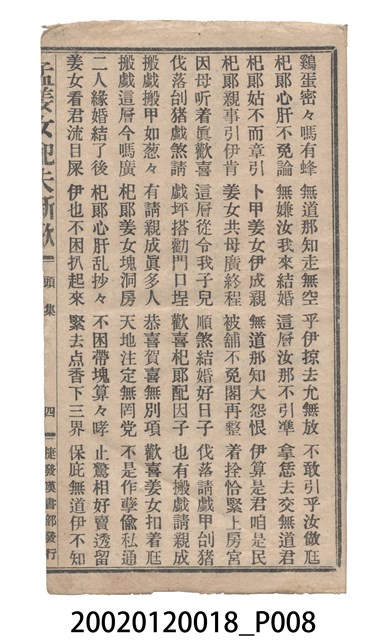 鷄蛋密々嗎有蜂 無道那知走無空 乎伊掠去尤無放 不敢引乎汝做尫
杞郞心肝不免論 無嫌汝我來結婚 這層汝那不引凖 拿恁去交無道君
杞郞姑不而章引 卜甲姜女伊成親 無道那知大怨恨 伊算是君咱是民
杞郞親事引伊肯 姜女共母廣終程 被舖不免閣再整 着拴恰緊上房宮
因母听着眞歡喜 這層從令我子兒 順煞結婚好日子 伐落請戲甲刣猪
伐落刣猪戲煞請 戲坪搭勸門口埕 歡喜杞郞配因子 也有搬戲請親成
搬戲搬甲如葱々 有請親成眞多人 恭喜賀喜無別項 歡喜姜女扣着尫
搬戲這層今嗎廣 杞郞姜女塊洞房 天地注定無罔党 不是作孽偸私通
二人緣婚結了後 杞郞心肝乱抄々 不困帶塊算々哮 止驚相好賣透留
姜女看君流目屎 伊也不困扒起來 緊去点香下三界 保庇無道伊不知
孟姜女配夫新歌 頭集 四 捷發漢書部發行
20020120018_P008